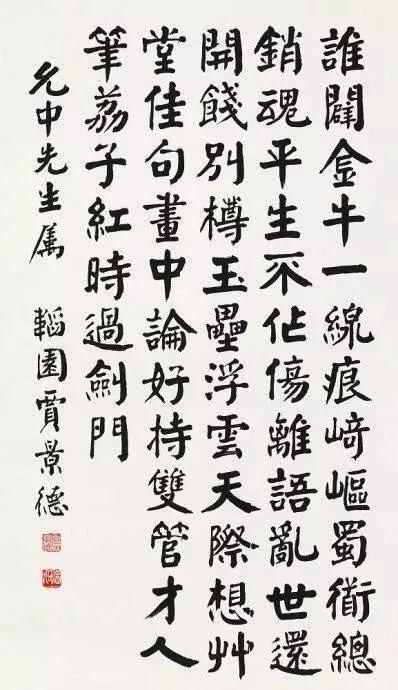 誰闢金牛一線痕崎嶇蜀衜總
銷魂平生不作傷離語亂世還
開餞別樽玉壘浮雲天際想艸
堂佳句畫中論好持雙管才人
筆荔子紅時過劍門
允中先生属 韜園賈景德